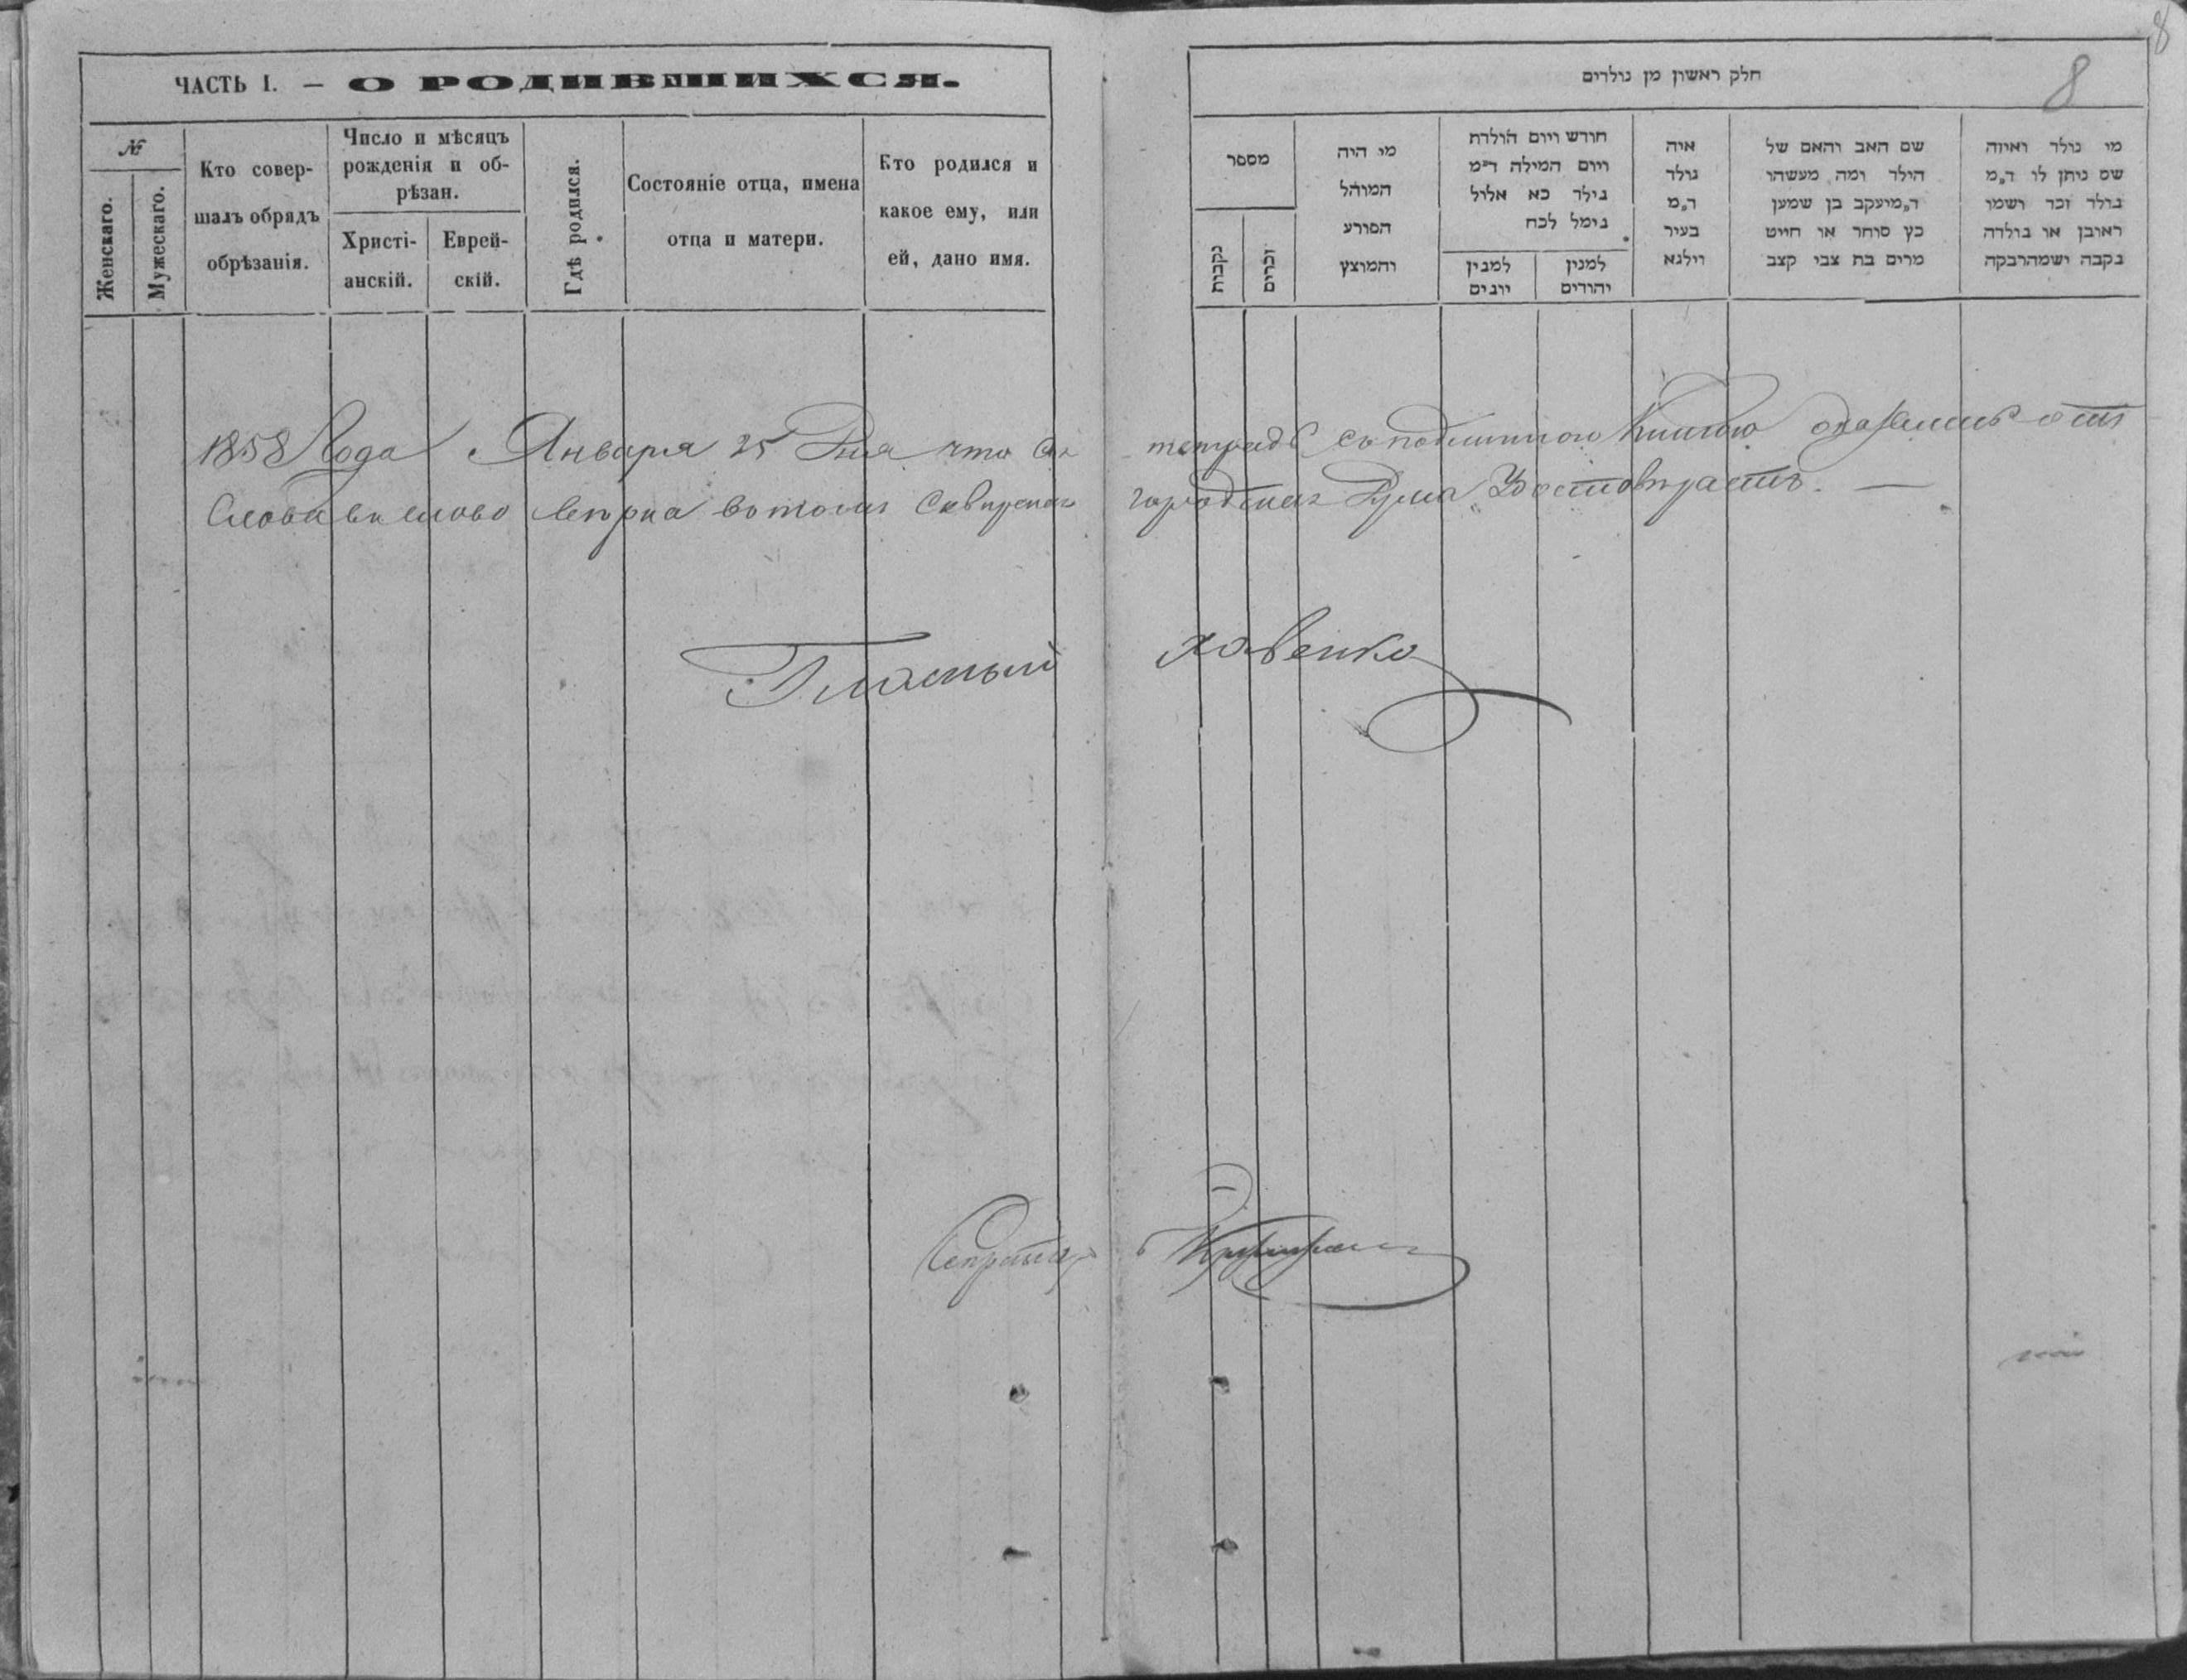 8
ЧАСТЬ I. — О РОДИВШИХСЯ.
№
Женскаго.
Мужескаго.
Кто совер-
шалъ обрядъ
обрѣзанія.
Число и мѣсяцъ
рожденія и об-
рѣзан.
Христі-
анскій.
Еврей-
скій.
Гдѣ родился.
Состояніе отца, имена
отца и матери.
Кто родился и
какое ему, или
ей, дано имя.
חלק ראשון מן נולדים
8
מספר
נקבות
זכרים
מי היה
המוהל
הפורע
והמוצץ
חודש ויום הולדת
ויום המילה ד״מ
נילד כא אלול
נימל לכח
למנין
יונים
למנין
יהודים
איה
נולד
ד״מ
בעיר
וילנא
שם האב והאם של
הילד ומה מעשהו
ד״מ יעקב בן שמעון
כץ סוחר או חייט
מרים בת צבי קצב
מי נולד ואיזה
שם ניתן לו ד״מ
נולד זכר ושמו
ראובן או נולדה
נקבה ושמה רבקה
1858 Года Января 25 Дня что сія тетрадь съ подлинною Книгою
Слово въ слово вѣрна въ томъ Сквирская городская Дума Удостовѣряетъ. —
Гласный
Секретарь